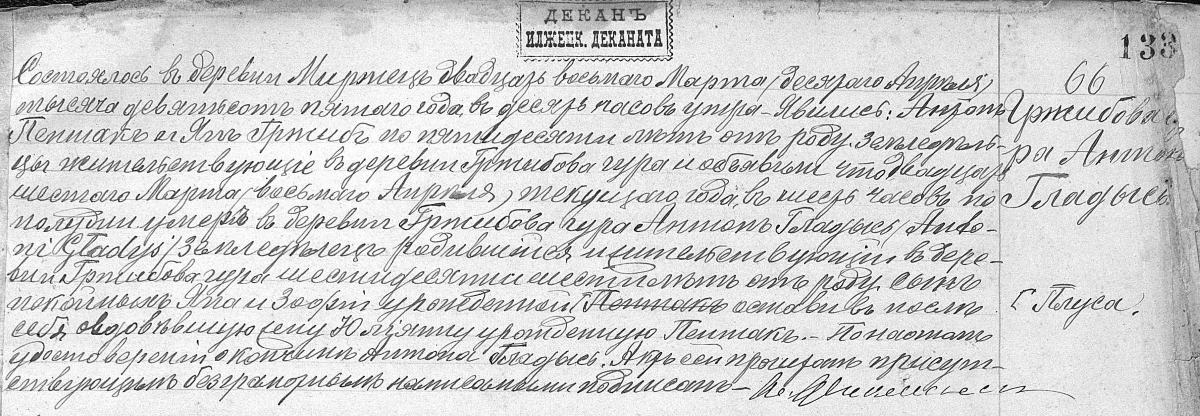 ДЕКАНЪ
ИЛЖЕЦК. ДЕКАНАТА
133
66
Гржибова гу-
ра Антонъ
Гладысь.
Состоялось въ деревни Миржецъ двадцать восьмаго Марта (десятаго Апреля)
тысяча девятьсотъ пятаго года, въ десять часовъ утра. Явились: Антонъ
Пентакъ и Янъ Гржибъ по пятидесяти лѣтъ отъ роду, земледѣль-
цы жительствующіе въ деревни Гржибова гура и объявили что двадцать
шестаго Марта (восьмаго Апреля) текущаго года, въ шесть часовъ по
полудни умеръ въ деревни Гржибова гура Антонъ Гладысь (Anto-
ni Gładyś) земледѣлецъ родившійся и жительствующій въ дере-
вни Гржибова гура шестидесяти шести лѣтъ отъ роду сынъ
покойныхъ Яна и Зофіи урожденной Пентакъ оставивъ послѣ
себя овдовѣвшую жену Юліянну урожденную Пентакъ. - По настат.
удостоверении о кончинѣ Антона Гладысь. Актъ сей прочитанъ присут-
ствующимъ безграмотнымъ нами самыми подписанъ -
Г Плуса.